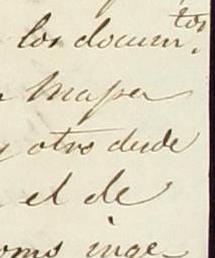 los docum.tos
Mapa
y otro desde
el de
inge-